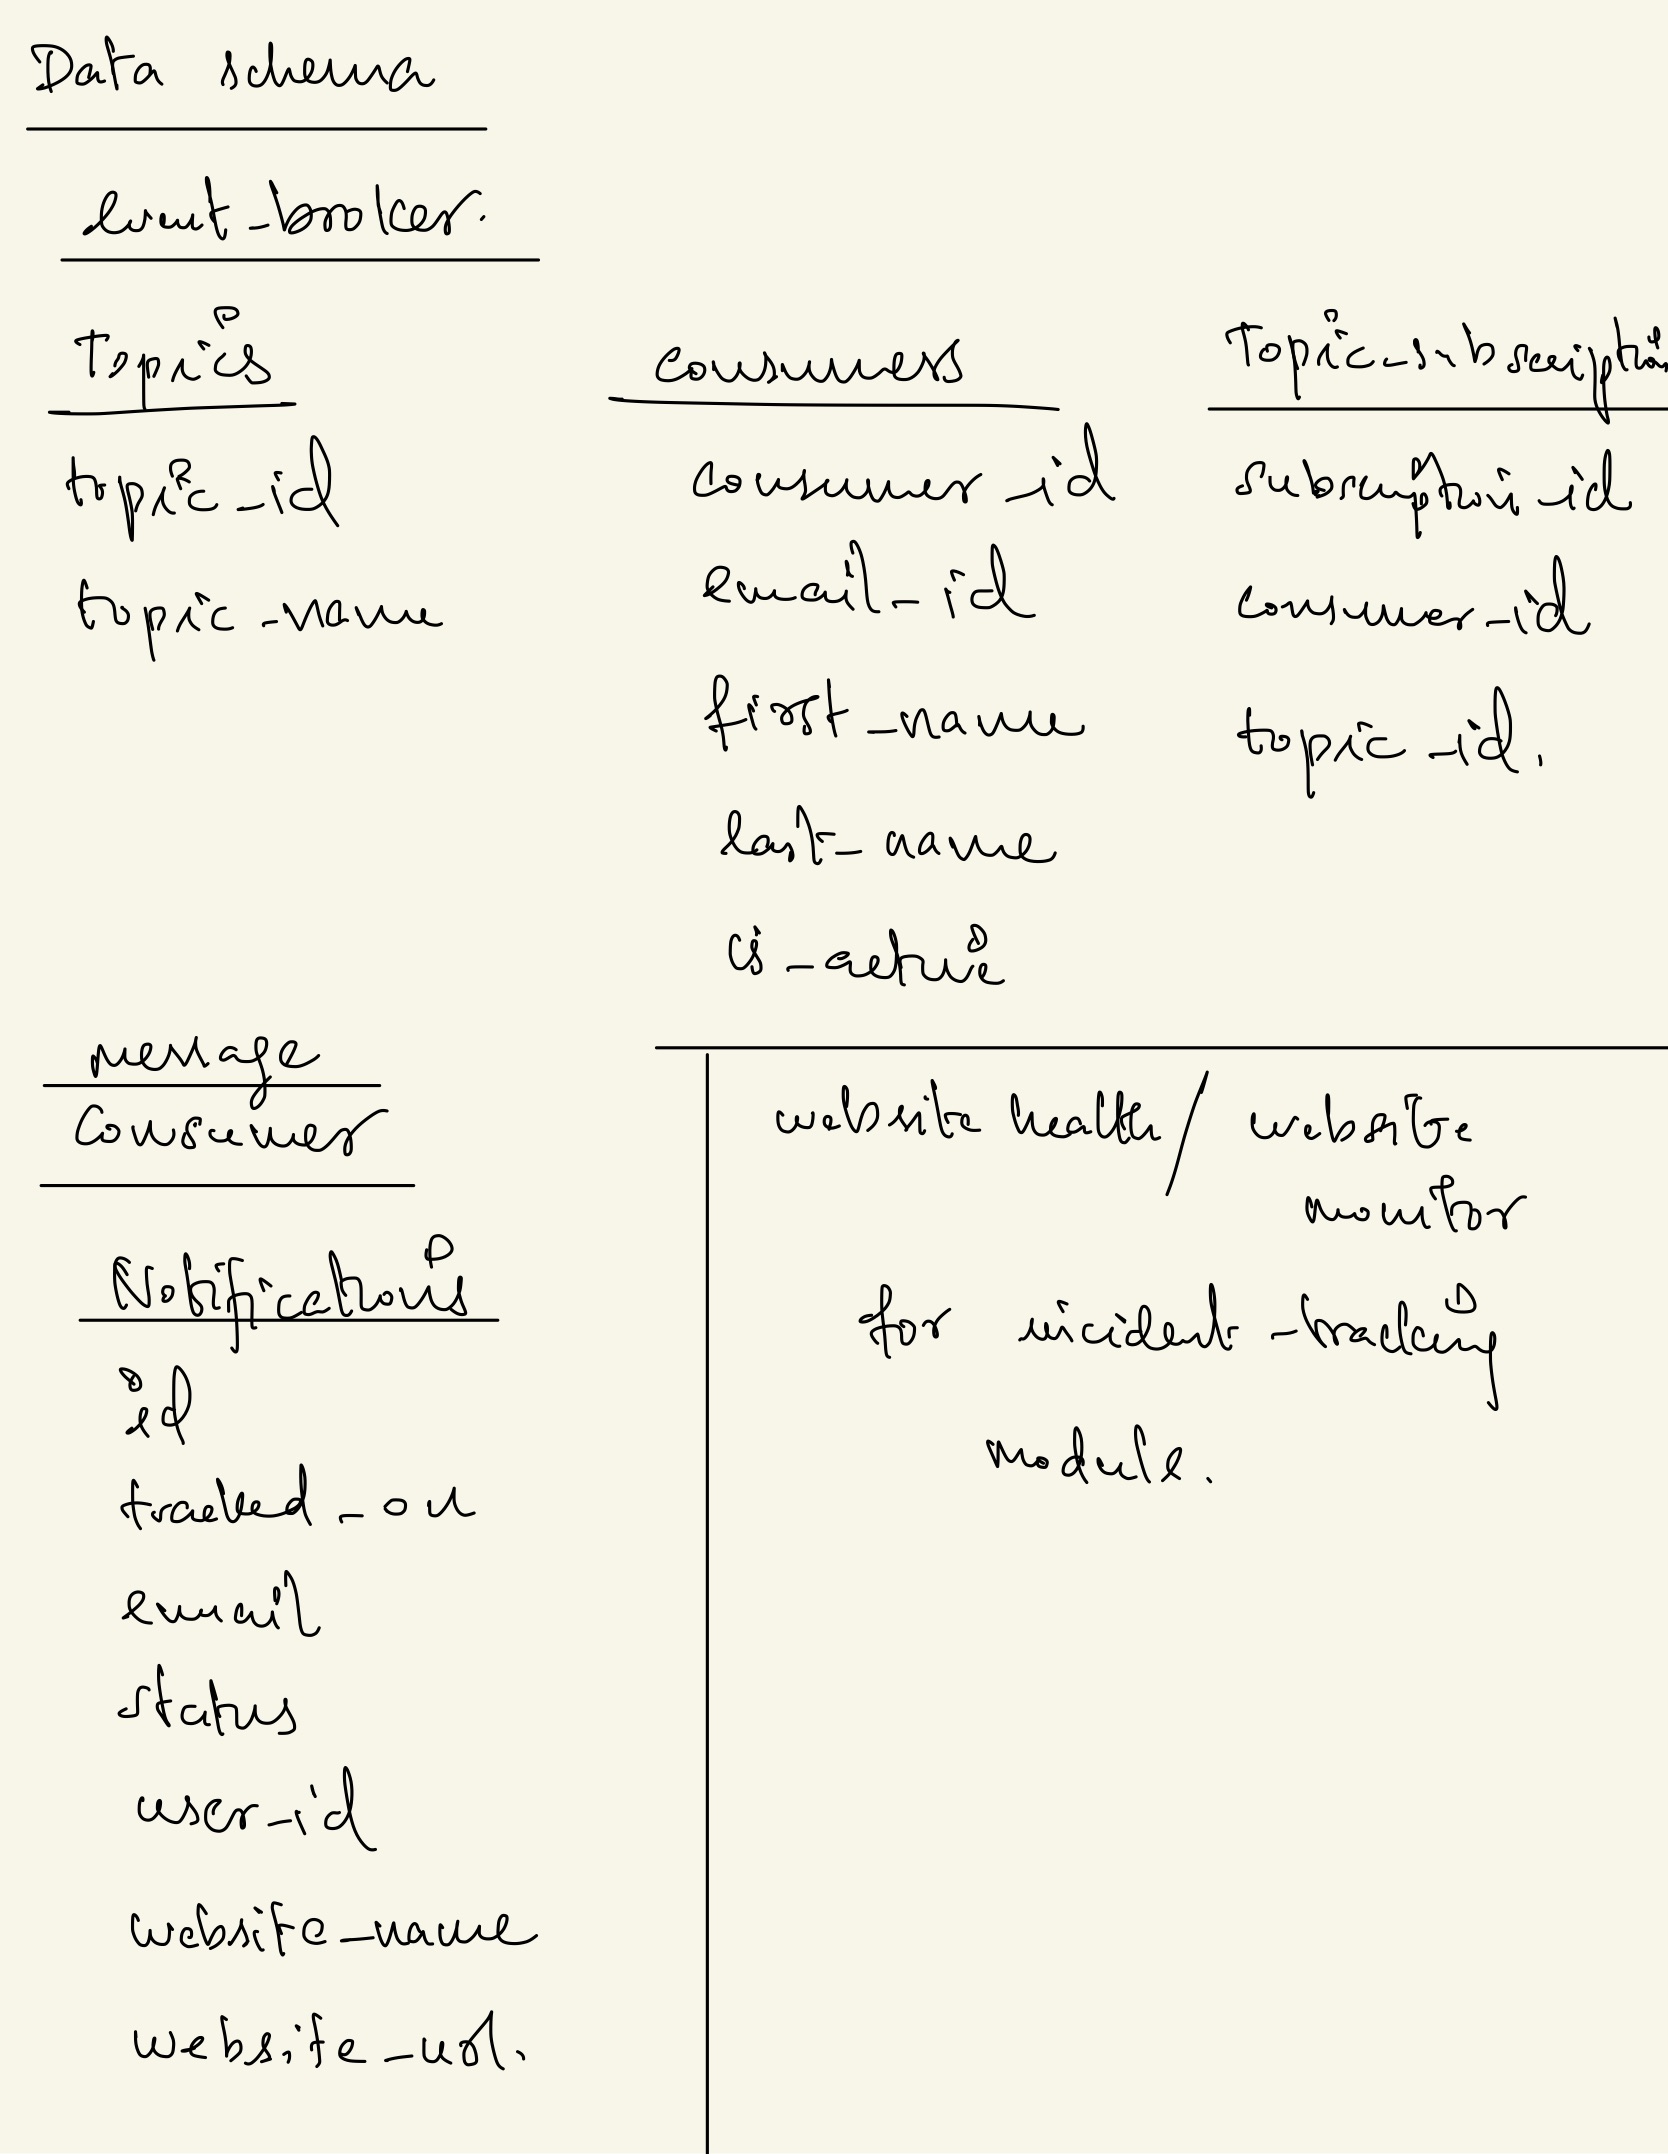 Data schema
event_broker.
Topics
topic_id
topic_name
consumers
consumer_id
email_id
first_name
last_name
is_active
Topic_subscription
subscription_id
consumer_id
topic_id.
message
Consumer
Notifications
id
tracked_on
email
status
user_id
website_name
website_url.
website health/ website
monitor
for incident_tracking
module.